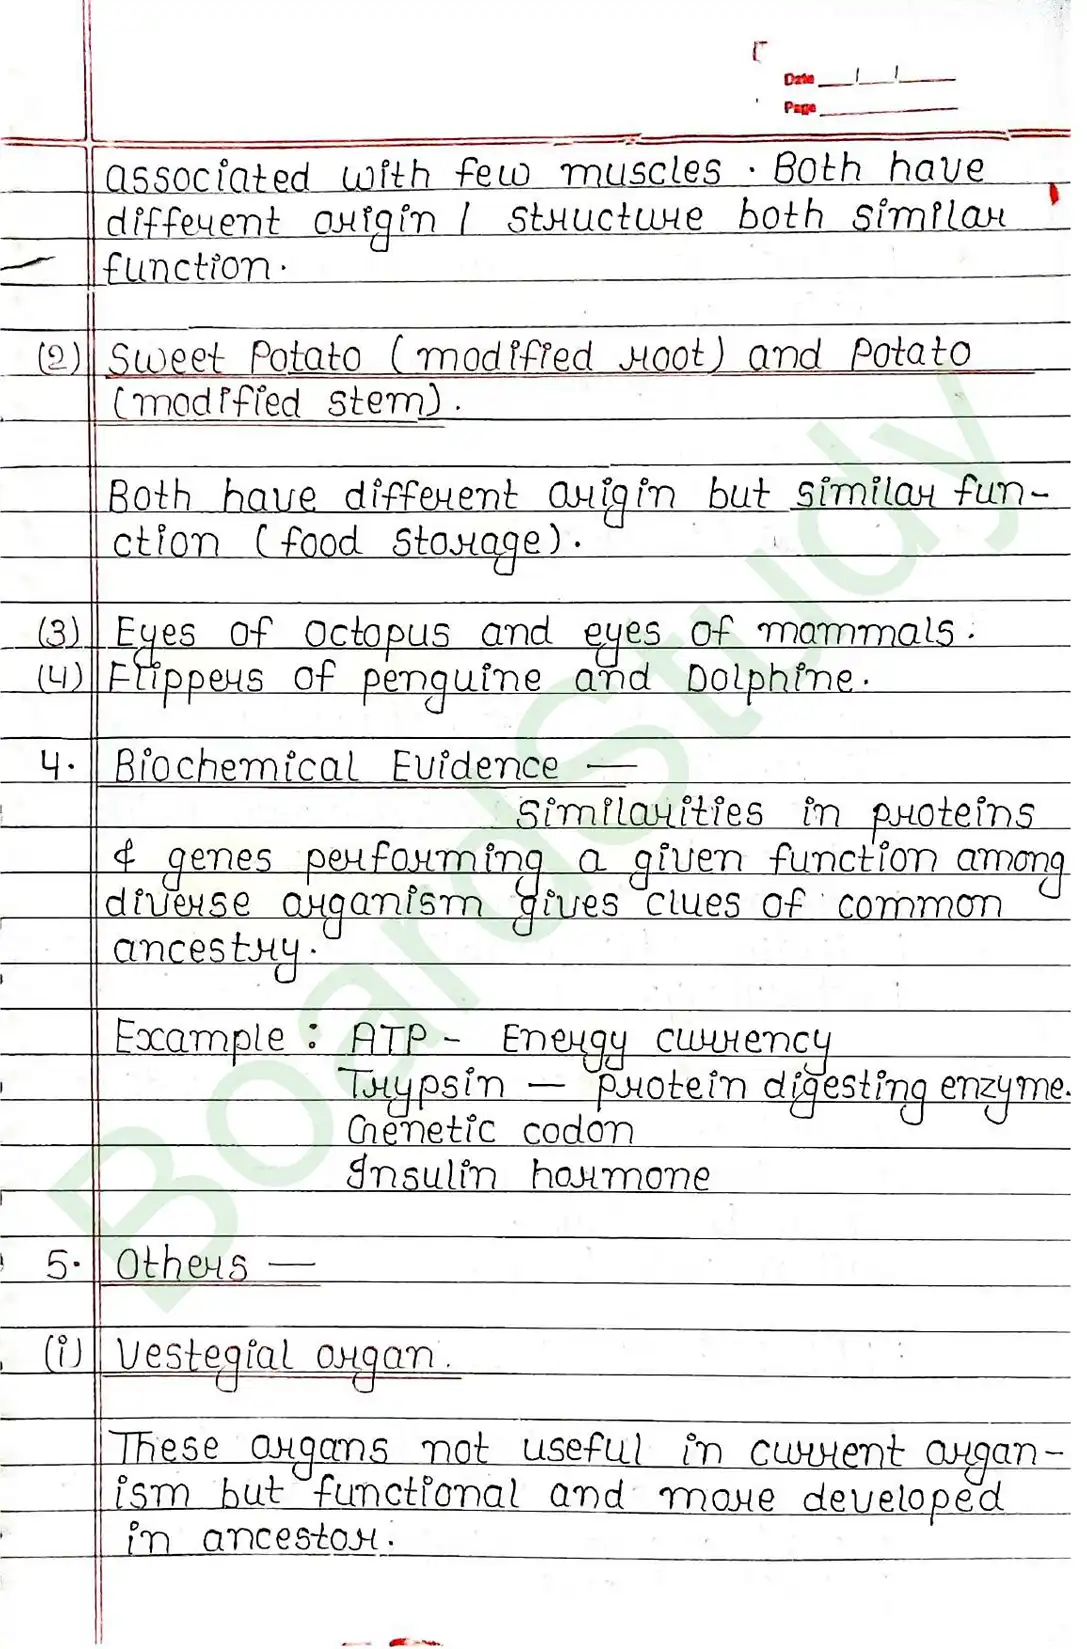 Date
Page
associated with few muscles. Both have
different origin / structure both similar
function.
(2) Sweet Potato (modified root) and Potato
(modified stem).
Both have different origin but similar fun-
ction (food storage).
(3) Eyes of octopus and eyes of mammals.
(4) Flippers of penguine and Dolphine.
4. Biochemical Evidence —
Similarities in proteins
& genes performing a given function among
diverse organism gives clues of common
ancestry.
Example : ATP - Energy currency
Trypsin — protein digesting enzyme.
Genetic codon
Insulin hormone
5. Others —
(i) Vestegial organ.
These organs not useful in current organ-
ism but functional and more developed
in ancestor.
BoardStudy